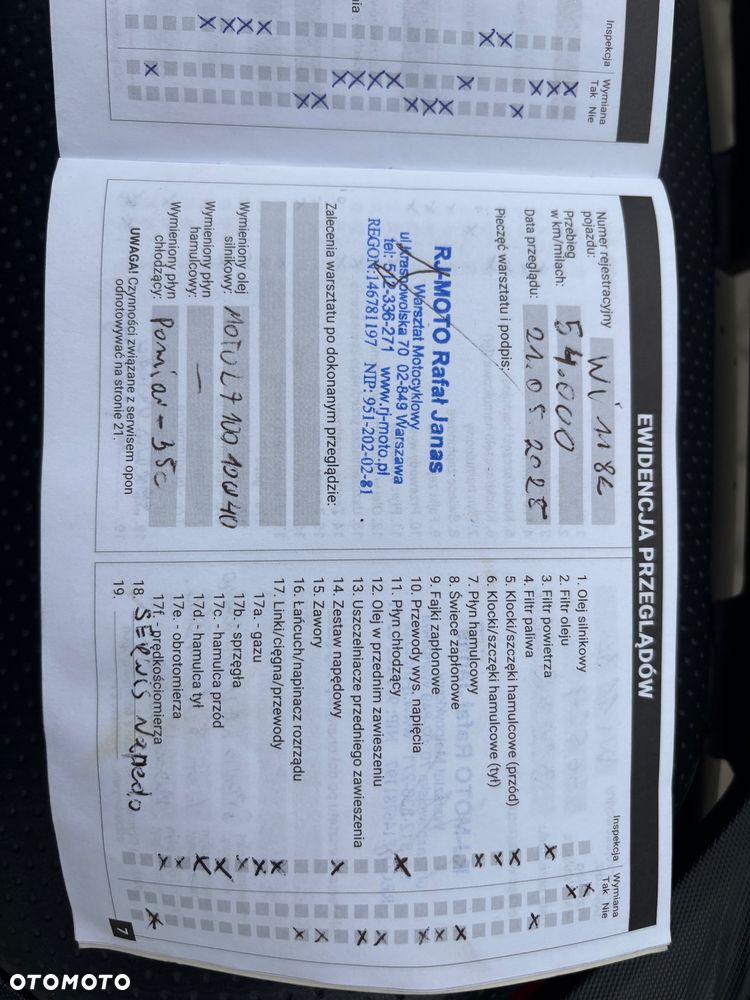 Inspekcja Wymiana
Tak Nie
EWIDENCJA PRZEGLĄDÓW
Numer rejestracyjny
pojazdu: WI 118
Przebieg
w km/milach: 54.000
Data przeglądu: 21.05.2025
Pieczęć warsztatu i podpis:
RJ-MOTO Rafał Janas
Warsztat Motocyklowy
ul.Krasnowolska 70 02-849 Warszawa
tel: 512-336-271 www.rj-moto.pl
REGON:146781197 NIP: 951-202-02-81
Zalecenia warsztatu po dokonanym przeglądzie:
Wymieniony olej
silnikowy: MOTUL 7100 10W40
Wymieniony płyn
hamulcowy: —
Wymieniony płyn
chłodzący: Pomiar - 35C
UWAGA! Czynności związane z serwisem opon
odnotowywać na stronie 21.
Inspekcja Wymiana
Tak Nie
1. Olej silnikowy
2. Filtr oleju
3. Filtr powietrza
4. Filtr paliwa
5. Klocki/szczęki hamulcowe (przód)
6. Klocki/szczęki hamulcowe (tył)
7. Płyn hamulcowy
8. Świece zapłonowe
9. Fajki zapłonowe
10. Przewody wys. napięcia
11. Płyn chłodzący
12. Olej w przednim zawieszeniu
13. Uszczelniacze przedniego zawieszenia
14. Zestaw napędowy
15. Zawory
16. Łańcuch/napinacz rozrządu
17. Linki/cięgna/przewody
17a. - gazu
17b. - sprzęgła
17c. - hamulca przód
17d. - hamulca tył
17e. - obrotomierza
17f. - prędkościomierza
18. SERWIS NAPEDU
19.
7
OTOMOTO